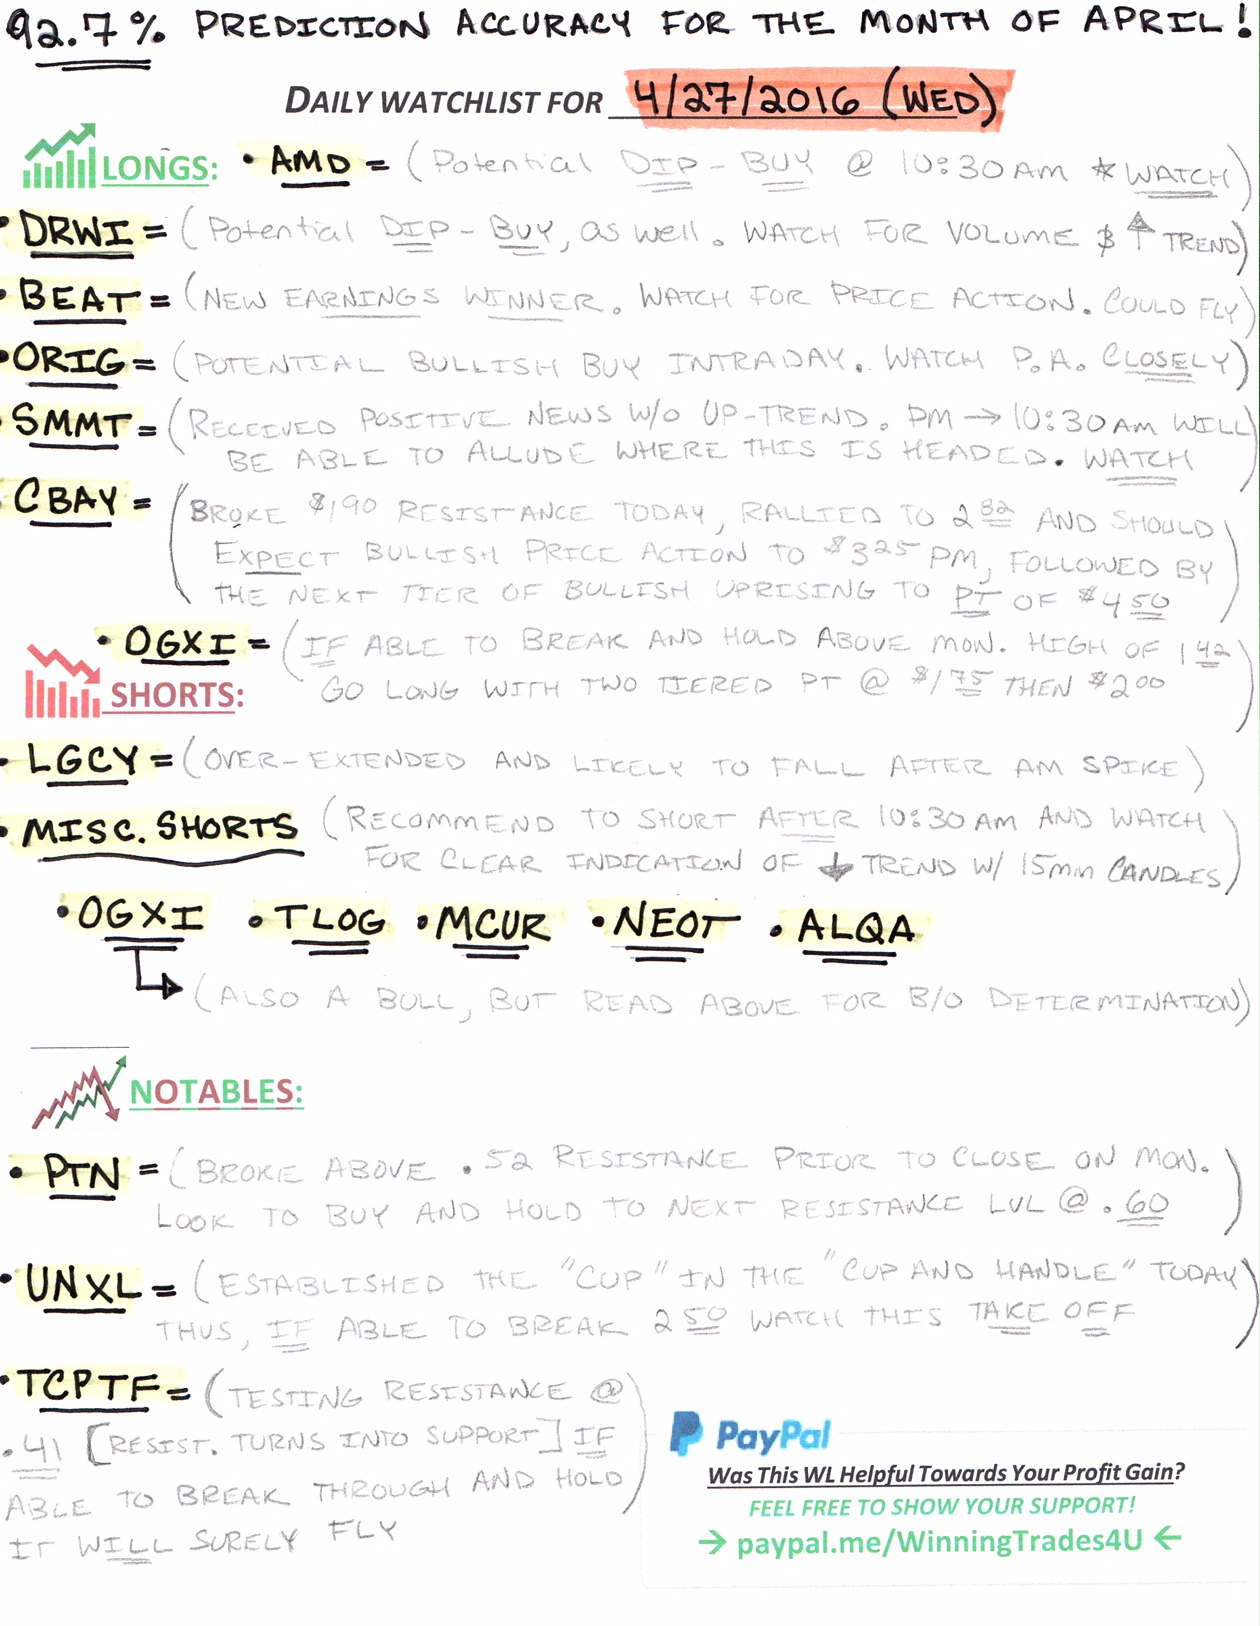 92.7% PREDICTION ACCURACY FOR THE MONTH OF APRIL!
DAILY WATCHLIST FOR 4/27/2016 (WED)
LONGS: • AMD = (Potential DIP - BUY @ 10:30 AM * WATCH)
• DRWI = (Potential DIP - BUY, as well. WATCH FOR VOLUME $ ↑ TREND)
• BEAT = (NEW EARNINGS WINNER. WATCH FOR PRICE ACTION. COULD FLY)
• ORIG = (POTENTIAL BULLISH BUY INTRADAY. WATCH P.A. CLOSELY)
• SMMT = (RECEIVED POSITIVE NEWS W/O UP-TREND. PM → 10:30 AM WILL
BE ABLE TO ALLUDE WHERE THIS IS HEADED. WATCH)
• CBAY = (BROKE $190 RESISTANCE TODAY, RALLIED TO 2 82 AND SHOULD
EXPECT BULLISH PRICE ACTION TO $325 PM, FOLLOWED BY
THE NEXT TIER OF BULLISH UPRISING TO PT OF $4 50)
• OGXI = (IF ABLE TO BREAK AND HOLD ABOVE MON. HIGH OF 1 42
GO LONG WITH TWO TIERED PT @ $1 75 THEN $2 00)
SHORTS:
• LGCY = (OVER-EXTENDED AND LIKELY TO FALL AFTER AM SPIKE)
• MISC. SHORTS (RECOMMEND TO SHORT AFTER 10:30 AM AND WATCH
FOR CLEAR INDICATION OF ↓ TREND W/ 15min CANDLES)
• OGXI • TLOG • MCUR • NEOT • ALQA
(ALSO A BULL, BUT READ ABOVE FOR B/O DETERMINATION)
NOTABLES:
• PTN = (BROKE ABOVE .52 RESISTANCE PRIOR TO CLOSE ON MON.
LOOK TO BUY AND HOLD TO NEXT RESISTANCE LVL @ .60)
• UNXL = (ESTABLISHED THE "CUP" IN THE "CUP AND HANDLE" TODAY
THUS, IF ABLE TO BREAK 2 50 WATCH THIS TAKE OFF)
• TCPTF = (TESTING RESISTANCE @
.41 [RESIST. TURNS INTO SUPPORT] IF
ABLE TO BREAK THROUGH AND HOLD
IT WILL SURELY FLY)
PayPal
Was This WL Helpful Towards Your Profit Gain?
FEEL FREE TO SHOW YOUR SUPPORT!
→ paypal.me/WinningTrades4U ←